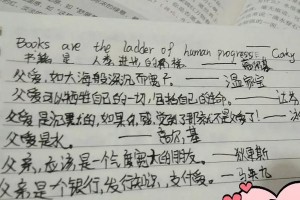 Books are the ladder of human progress. —
书籍是 人类进步的阶梯. ——高尔基
父爱,如大海般深沉而宽广。——温家宝
父爱可以牺牲自己的一切,包括自己的生命。——达
父爱是沉默的,如果你感觉到了那就不是父爱了!——冰
父爱是水。——高尔基
父亲,应该是一个气度宽大的朋友。——狄更斯
父亲是个银行,发行知识,支付爱。——马